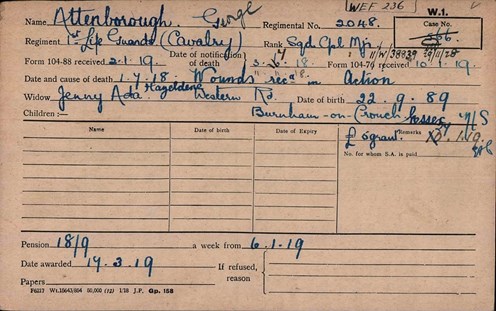 WFF 236
W.1.
Name Attenborough. George Regimental No. 2048. Case No.
Regiment 1st Life Guards (Cavalry) Rank Sqd Cpl Mjr
Form 104-88 received 2.1.19. Date of notification of death Form 104-76 received 10.1.19.
Date and cause of death 1.7.18. Wounds recd in Action
Widow Jenny Ada Hazeldene Western Rd. Date of birth 22.9.89
Children:— Burnham-on-Crouch Essex
Name Date of birth Date of Expiry Remarks
£5 grant
No. for whom S.A. is paid
Pension 18/9 a week from 6.1.19
Date awarded 17.3.19 If refused, reason
Papers
F6217 Wt.15643/664 50,000 (12) 1/18 J.P. Gp. 168